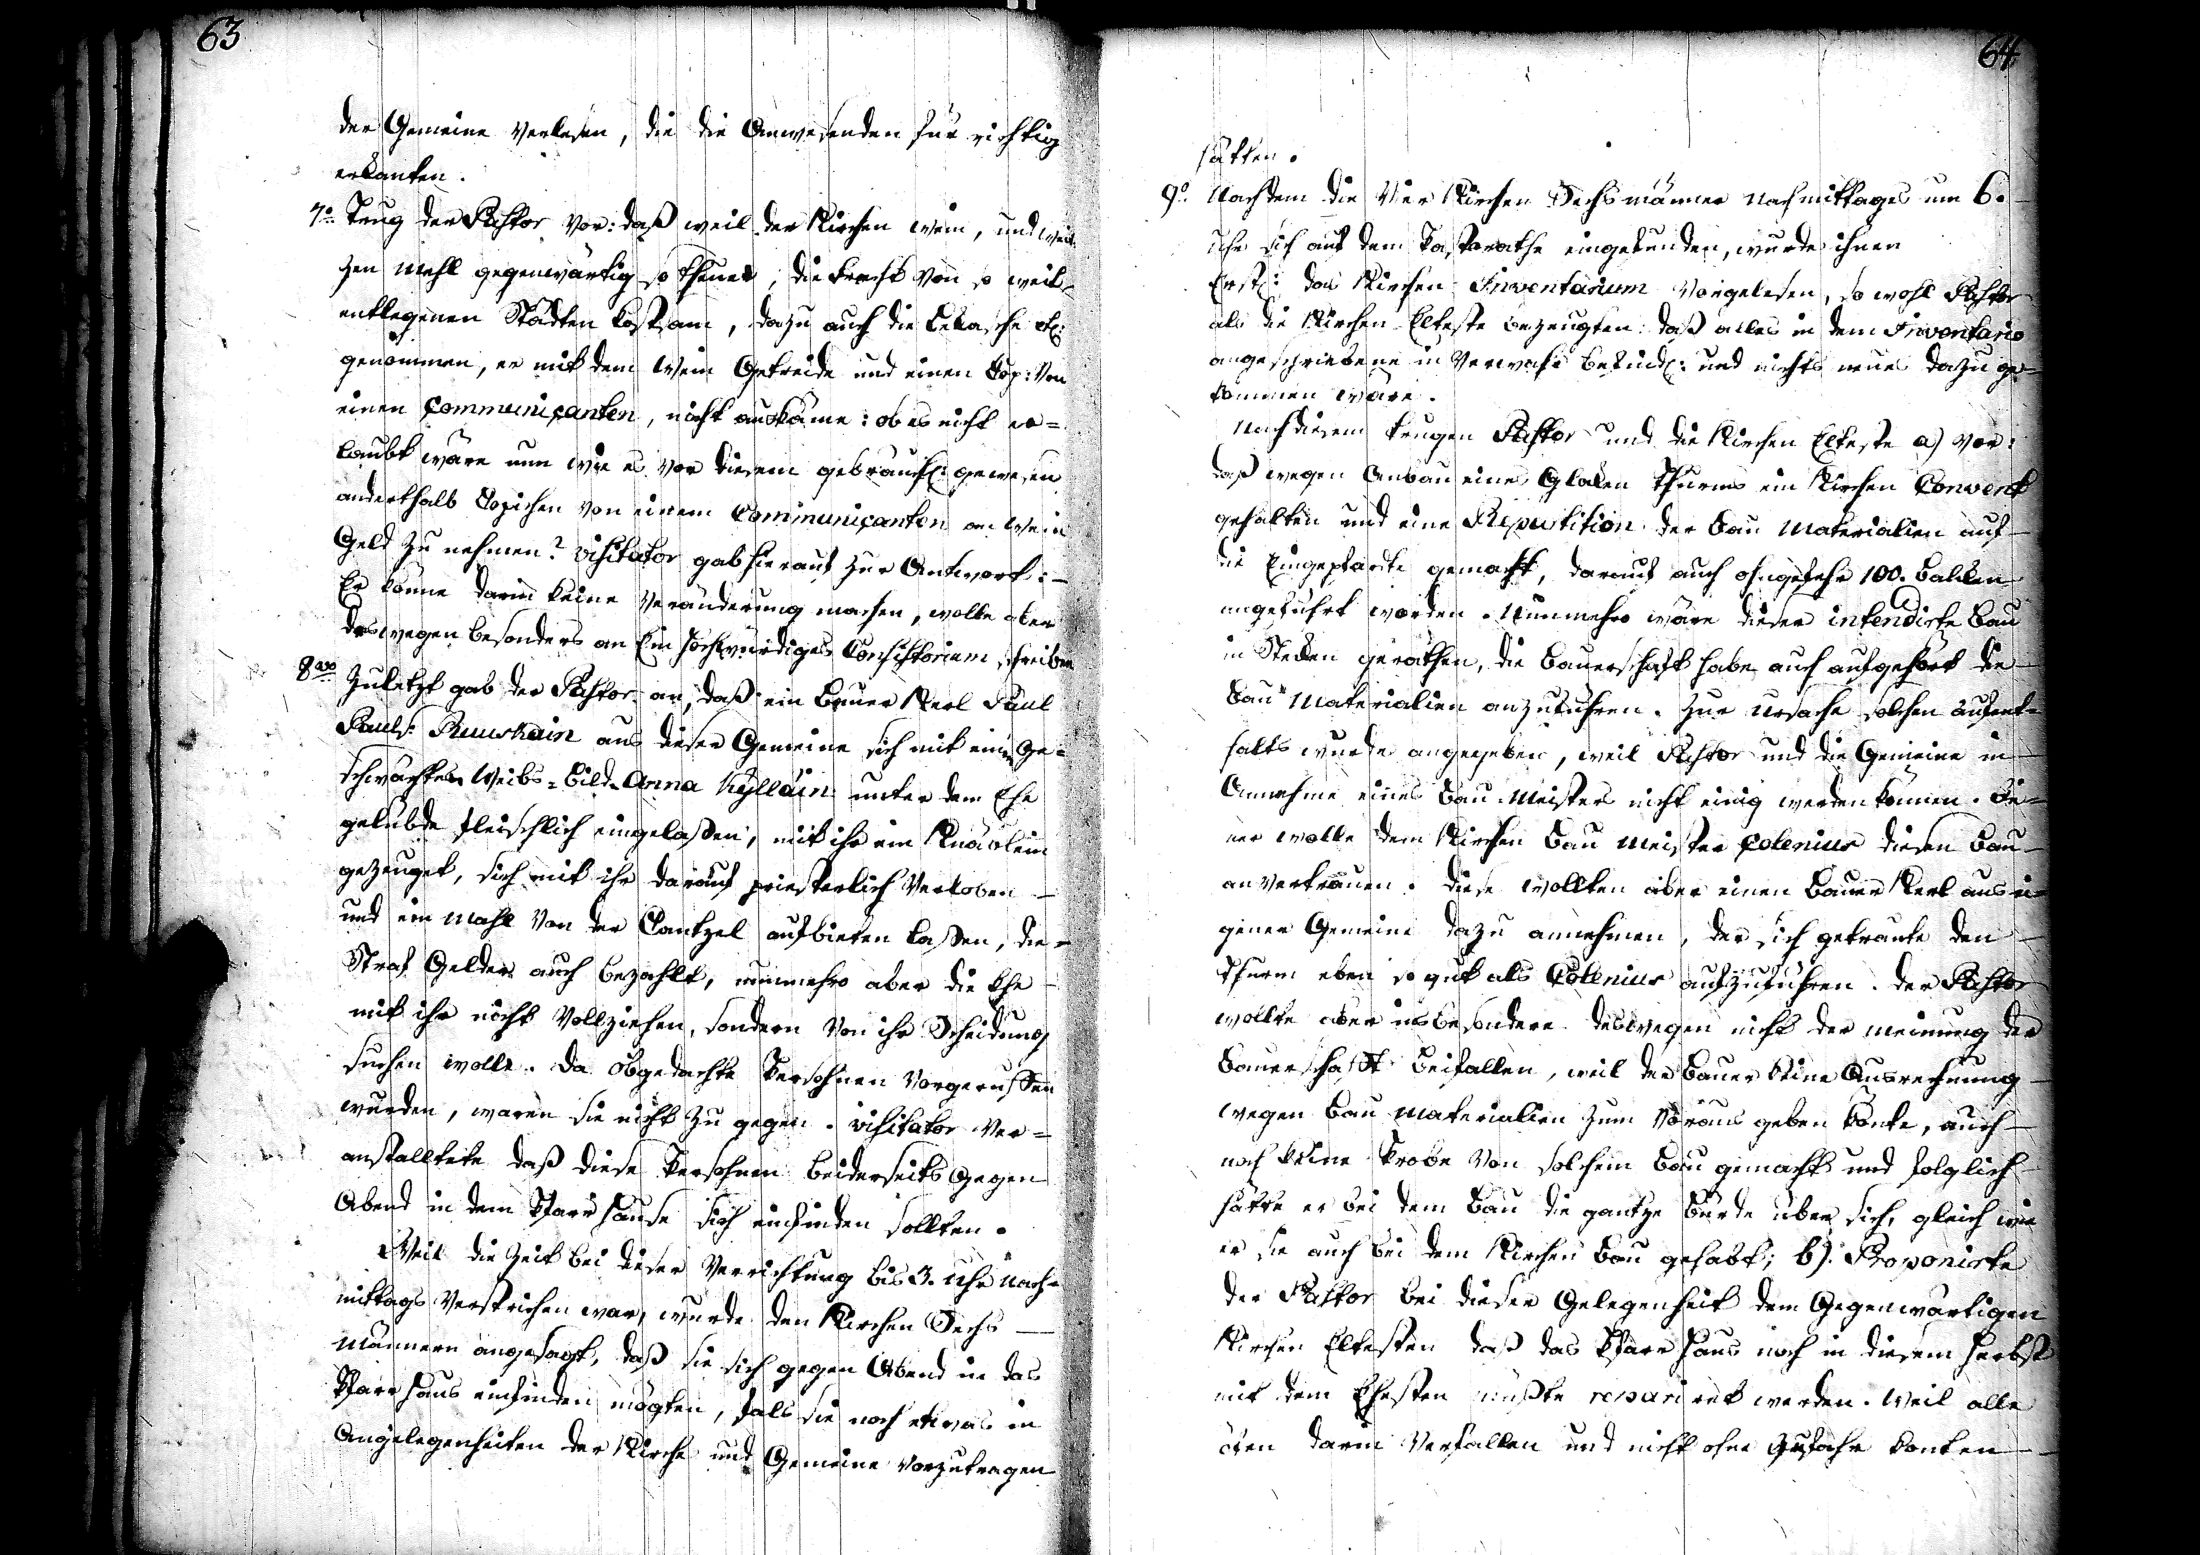 63
der Gemeine verlesen, die die Anwesenden für richtig
erkanten.
7o Trug der Pastor vor: daß weil der Kirchen wein, und wei-
zen Mehl gegenwärtig so theuer, die Fracht von so weit
entlegenen Städten kostsam, dazu auch die Lekasche etc:
genommen, er mit dem Wein Getreide und einen Cop: von
einen Communicanten, nicht auskäme: ob es nicht er=
laubt wäre nun wie es vor diesem gebräuchl: gewesen
anderthalb Copichen von einem Communicanten an Wein
Geld zu nehmen? Visitator gab hierauf zur Antwort: -
Er könne darin keine Veränderung machen, wolle aber
deswegen besonders an Ein Hochwürdiges Consistorium schreiben
8avo Zuletzt gab der Pastor an, daß ein Bauer Kerl Paul
Pauls: Ruuskain aus dieser Gemeine sich mit einem Ge=
schwächten Weibs=Bild Anna Kylläin unter dem Ehe
gelübde fleischlich eingelaßen, mit ihr ein Knäblein
gezeuget, sich mit ihr darauf priesterlich verloben -
und ein Mahl von der Cantzel aufbieten laßen, die-
Straf Gelder auch bezahlt, nunmehro aber die Ehe -
mit ihr nicht vollziehen, sondern von ihr Scheidung
suchen wolle. Da obgedachte Persohnen vorgeruffen
wurden, waren sie nicht zu gegen. Visitator ver=
anstalltete daß diese Persohnen beiderseits gegen
Abend in dem Pfarr Hause sich einfinden sollten.
Weil die Zeit bei dieser Verrichtung bis 3. Uhr nach=
mittags verstrichen war, wurde den Kirchen Sechs -
männern angesagt, daß sie sich gegen Abend in das
Pfarr Haus einfinden mögten, fals sie noch etwas in
Angelegenheiten der Kirche und Gemeine vorzutragen
64
hätten.
9o. Nachdem die Vier Kirchen Sechsmänner nachmittages um 6. -
Uhr sich auf dem Pastorathe eingefunden, wurde ihnen
Erstl: das Kirchen Inventarium vorgelesen, so wohl Pastor
als die Kirchen Elteste bezeugten: daß alles in dem Inventario
angeschriebene in Verwahr befindl: und nichts neues dazu ge-
kommen wäre.
Nach diesem trugen Pastor und die Kirchen Elteste a) vor:
daß wegen Anbau eines Gloken Thurms ein Kirchen Convent
gehalten und eine Repartition der Bau Materialien auf -
die Eingepfarte gemacht, darauf auch ohngefehr 100. Balken
angeführt worden. Nunmehro wäre dieser intendirte Bau
in Steken gerathen, die Bauerschaft habe auch aufgehört die -
Bau Materialien anzuführen. Zur Ursache solchen Aufent-
halts wurde angegeben, weil Pastor und die Gemeine in -
Annehme eines Bau Meisters nicht einig werden können. Je=
ner wolle dem Kirchen Bau Meister Colenius diesen Bau -
anvertrauen. Diese wollten aber einen Bauer Kerl aus ei=
gener Gemeine dazu annehmen, der sich getraute den -
Thurm eben so gut als Colenius aufzuführen. Der Pastor
wollte aber insbesondere deswegen nicht der Meinung der
Bauerschaft beifallen, weil der Bauer keine Ausrechnung -
wegen Bau Materialien zum Voraus geben könte, auch -
noch keine Probe von solchem Bau gemacht und folglich -
hätte er bei dem Bau die gantze Bürde über sich, gleich wie
er sie auch bei dem Kirchen Bau gehabt; b). Proponirte
der Pastor bei dieser Gelegenheit dem Gegenwärtigen
Kirchen Eltesten daß das Pfarr Haus noch in diesem Herbst
mit dem Ehesten müßte reparieret werden. Weil alle
öfen darin verfallen und nicht ohne Gefahr konten -